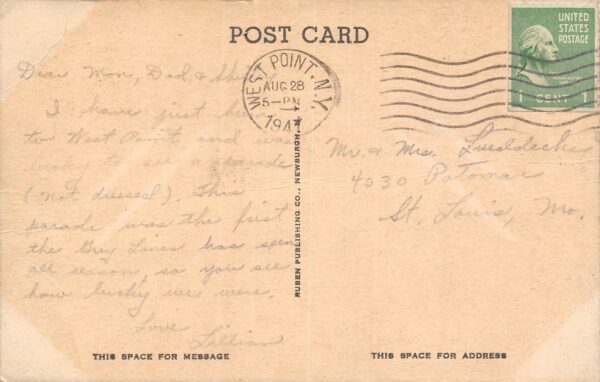 POST CARD
UNITED
STATES
POSTAGE
1 CENT 1
WEST POINT, N.Y.
AUG 28
5-PM
194
Dear Mom, Dad &
I have just
to West Point and was
to see a parade
(not dressed). This
parade was the first
the Grey Lines has seen
all season, so you see
how lucky we were.
Love
Lillian
RUBEN PUBLISHING CO., NEWBURGH, N.Y.
Mr. & Mrs. Lueddecke
4030 Potomac
St. Louis, Mo.
THIS SPACE FOR MESSAGE
THIS SPACE FOR ADDRESS